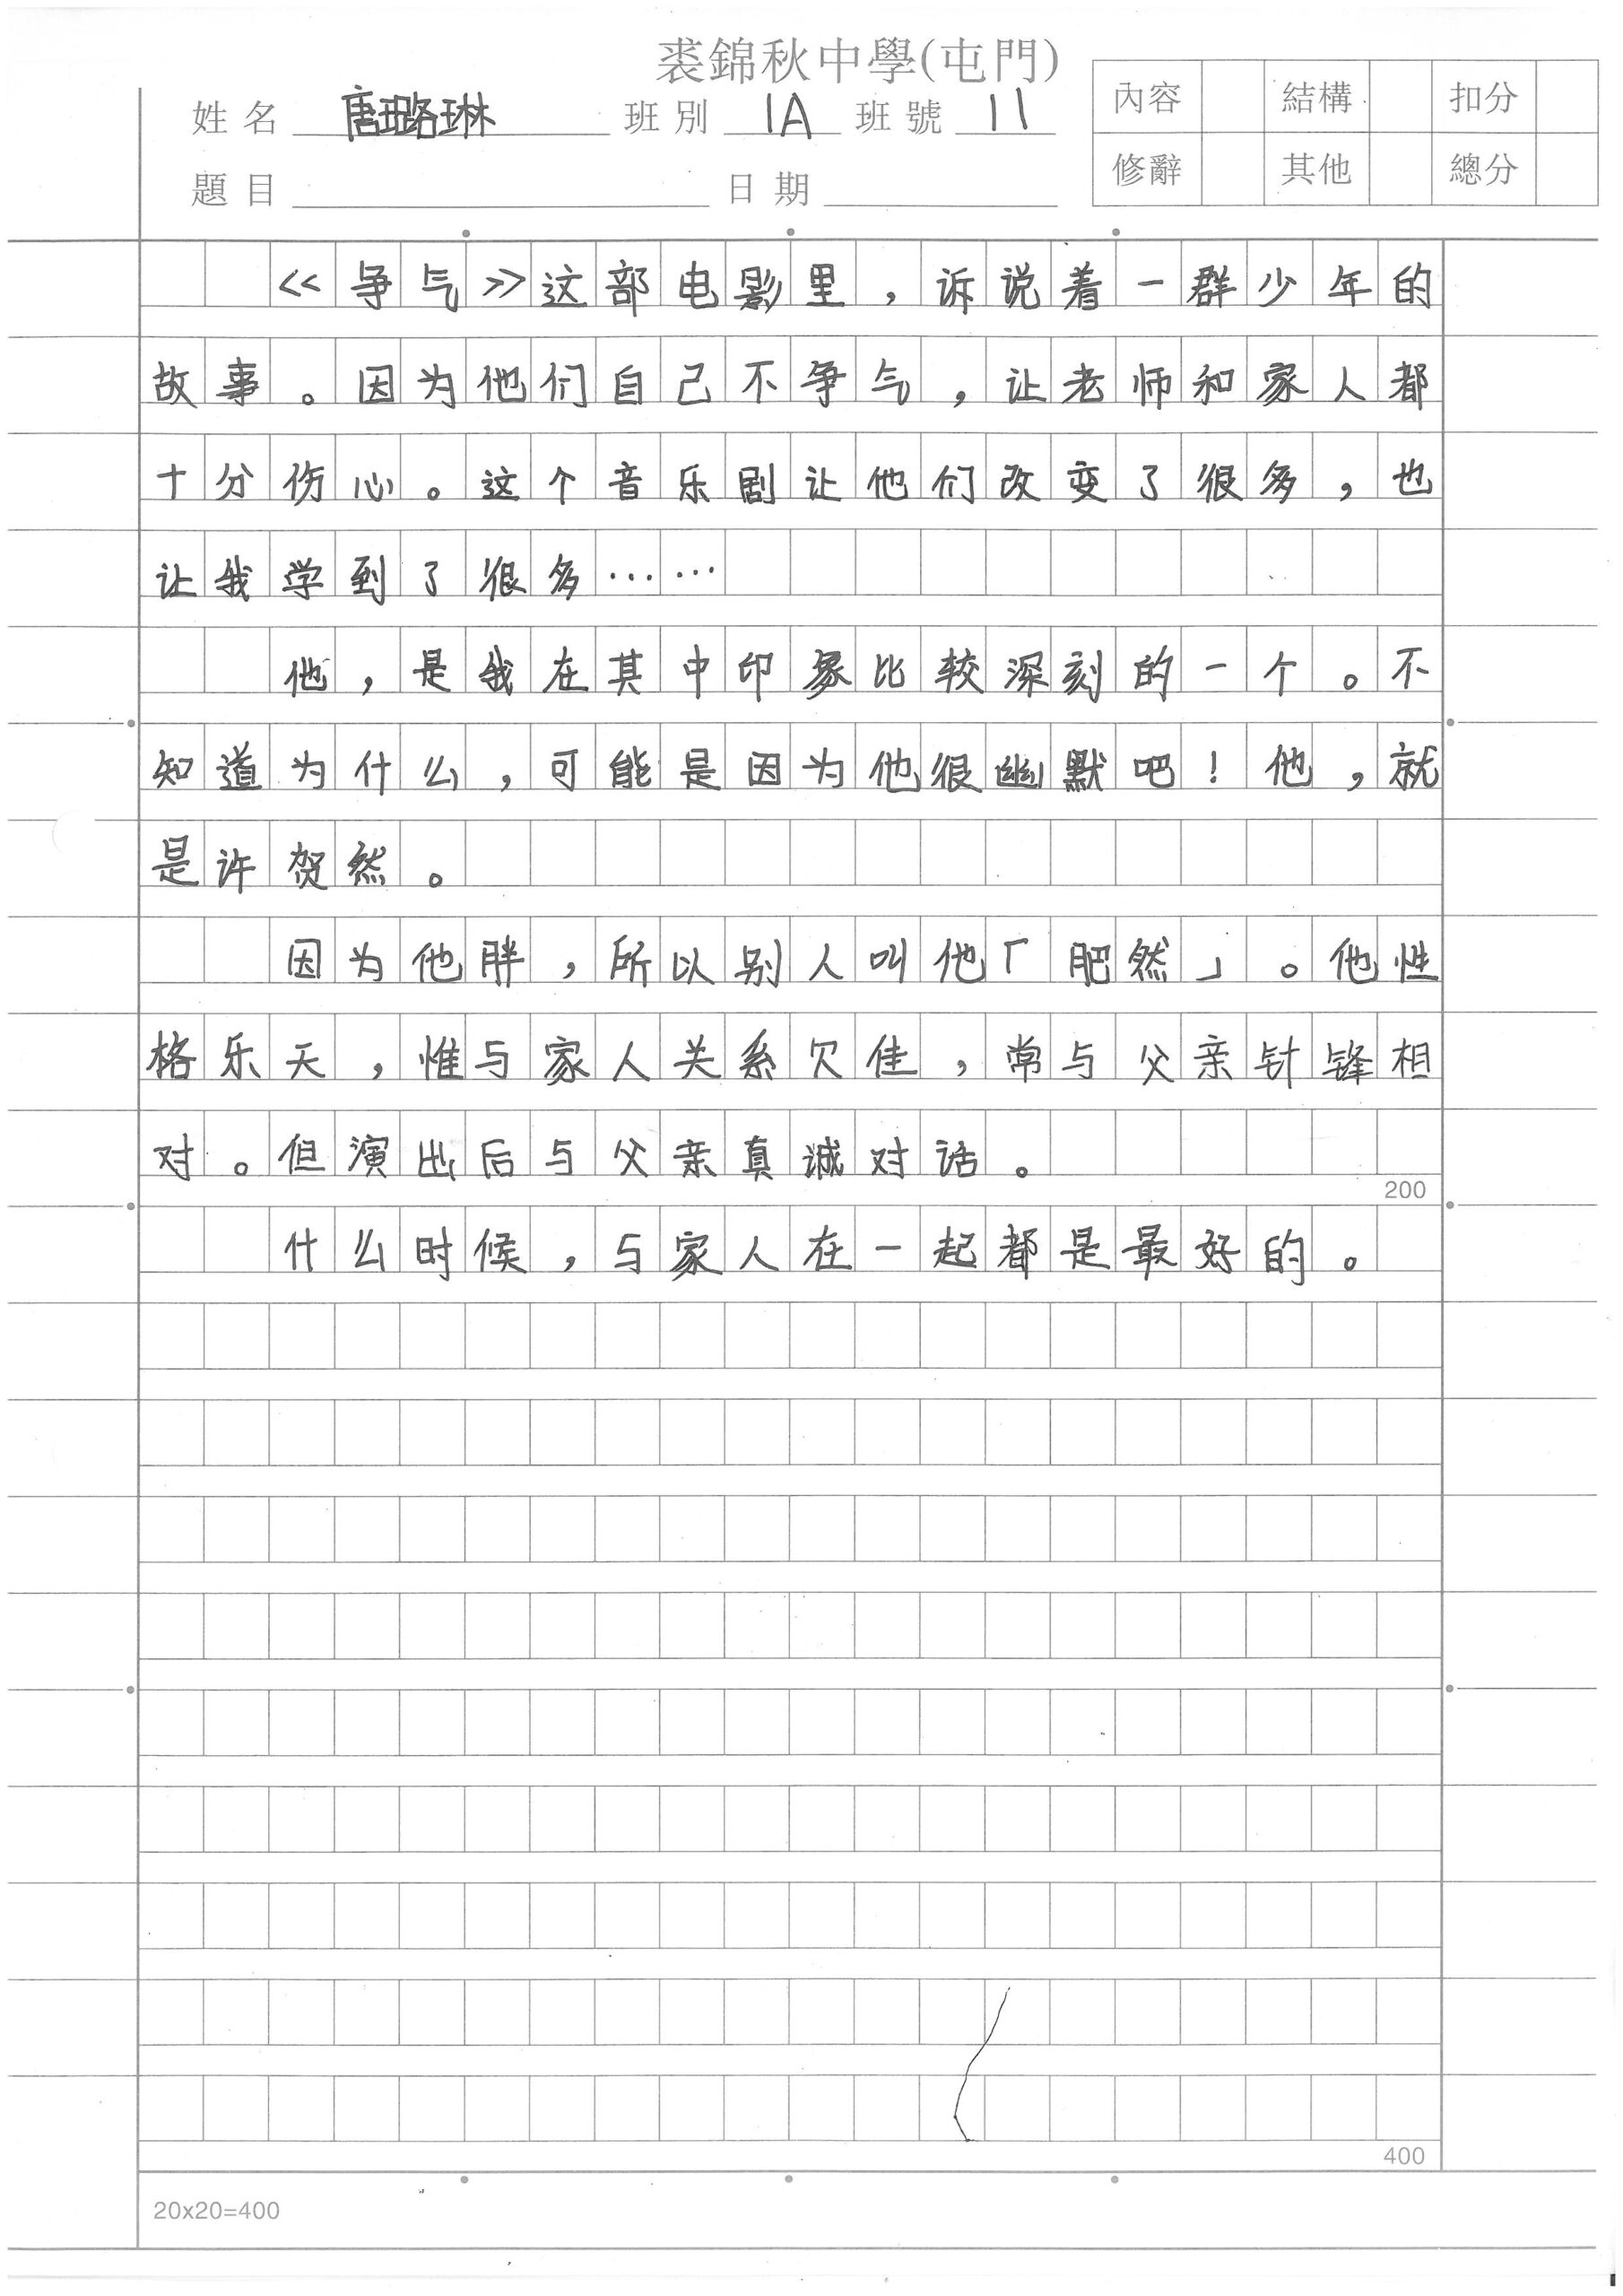 裘錦秋中學(屯門)
姓名 唐璐琳 班別 1A 班號 11
題目 日期
內容 結構 扣分
修辭 其他 總分
<<争气>>这部电影里，诉说着一群少年的
故事。因为他们自己不争气，让老师和家人都
十分伤心。这个音乐剧让他们改变了很多，也
让我学到了很多……
他，是我在其中印象比较深刻的一个。不
知道为什么，可能是因为他很幽默吧！他，就
是许贺然。
因为他胖，所以别人叫他「肥然」。他性
格乐天，惟与家人关系欠佳，常与父亲针锋相
对。但演出后与父亲真诚对话。
200
什么时候，与家人在一起都是最好的。
400
20x20=400